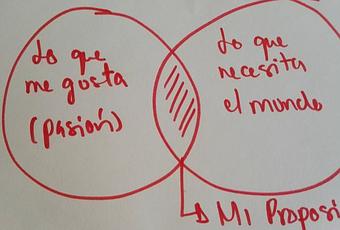 Lo que
me gusta
(pasión)
Lo que
necesita
el mundo
Mi Proposi